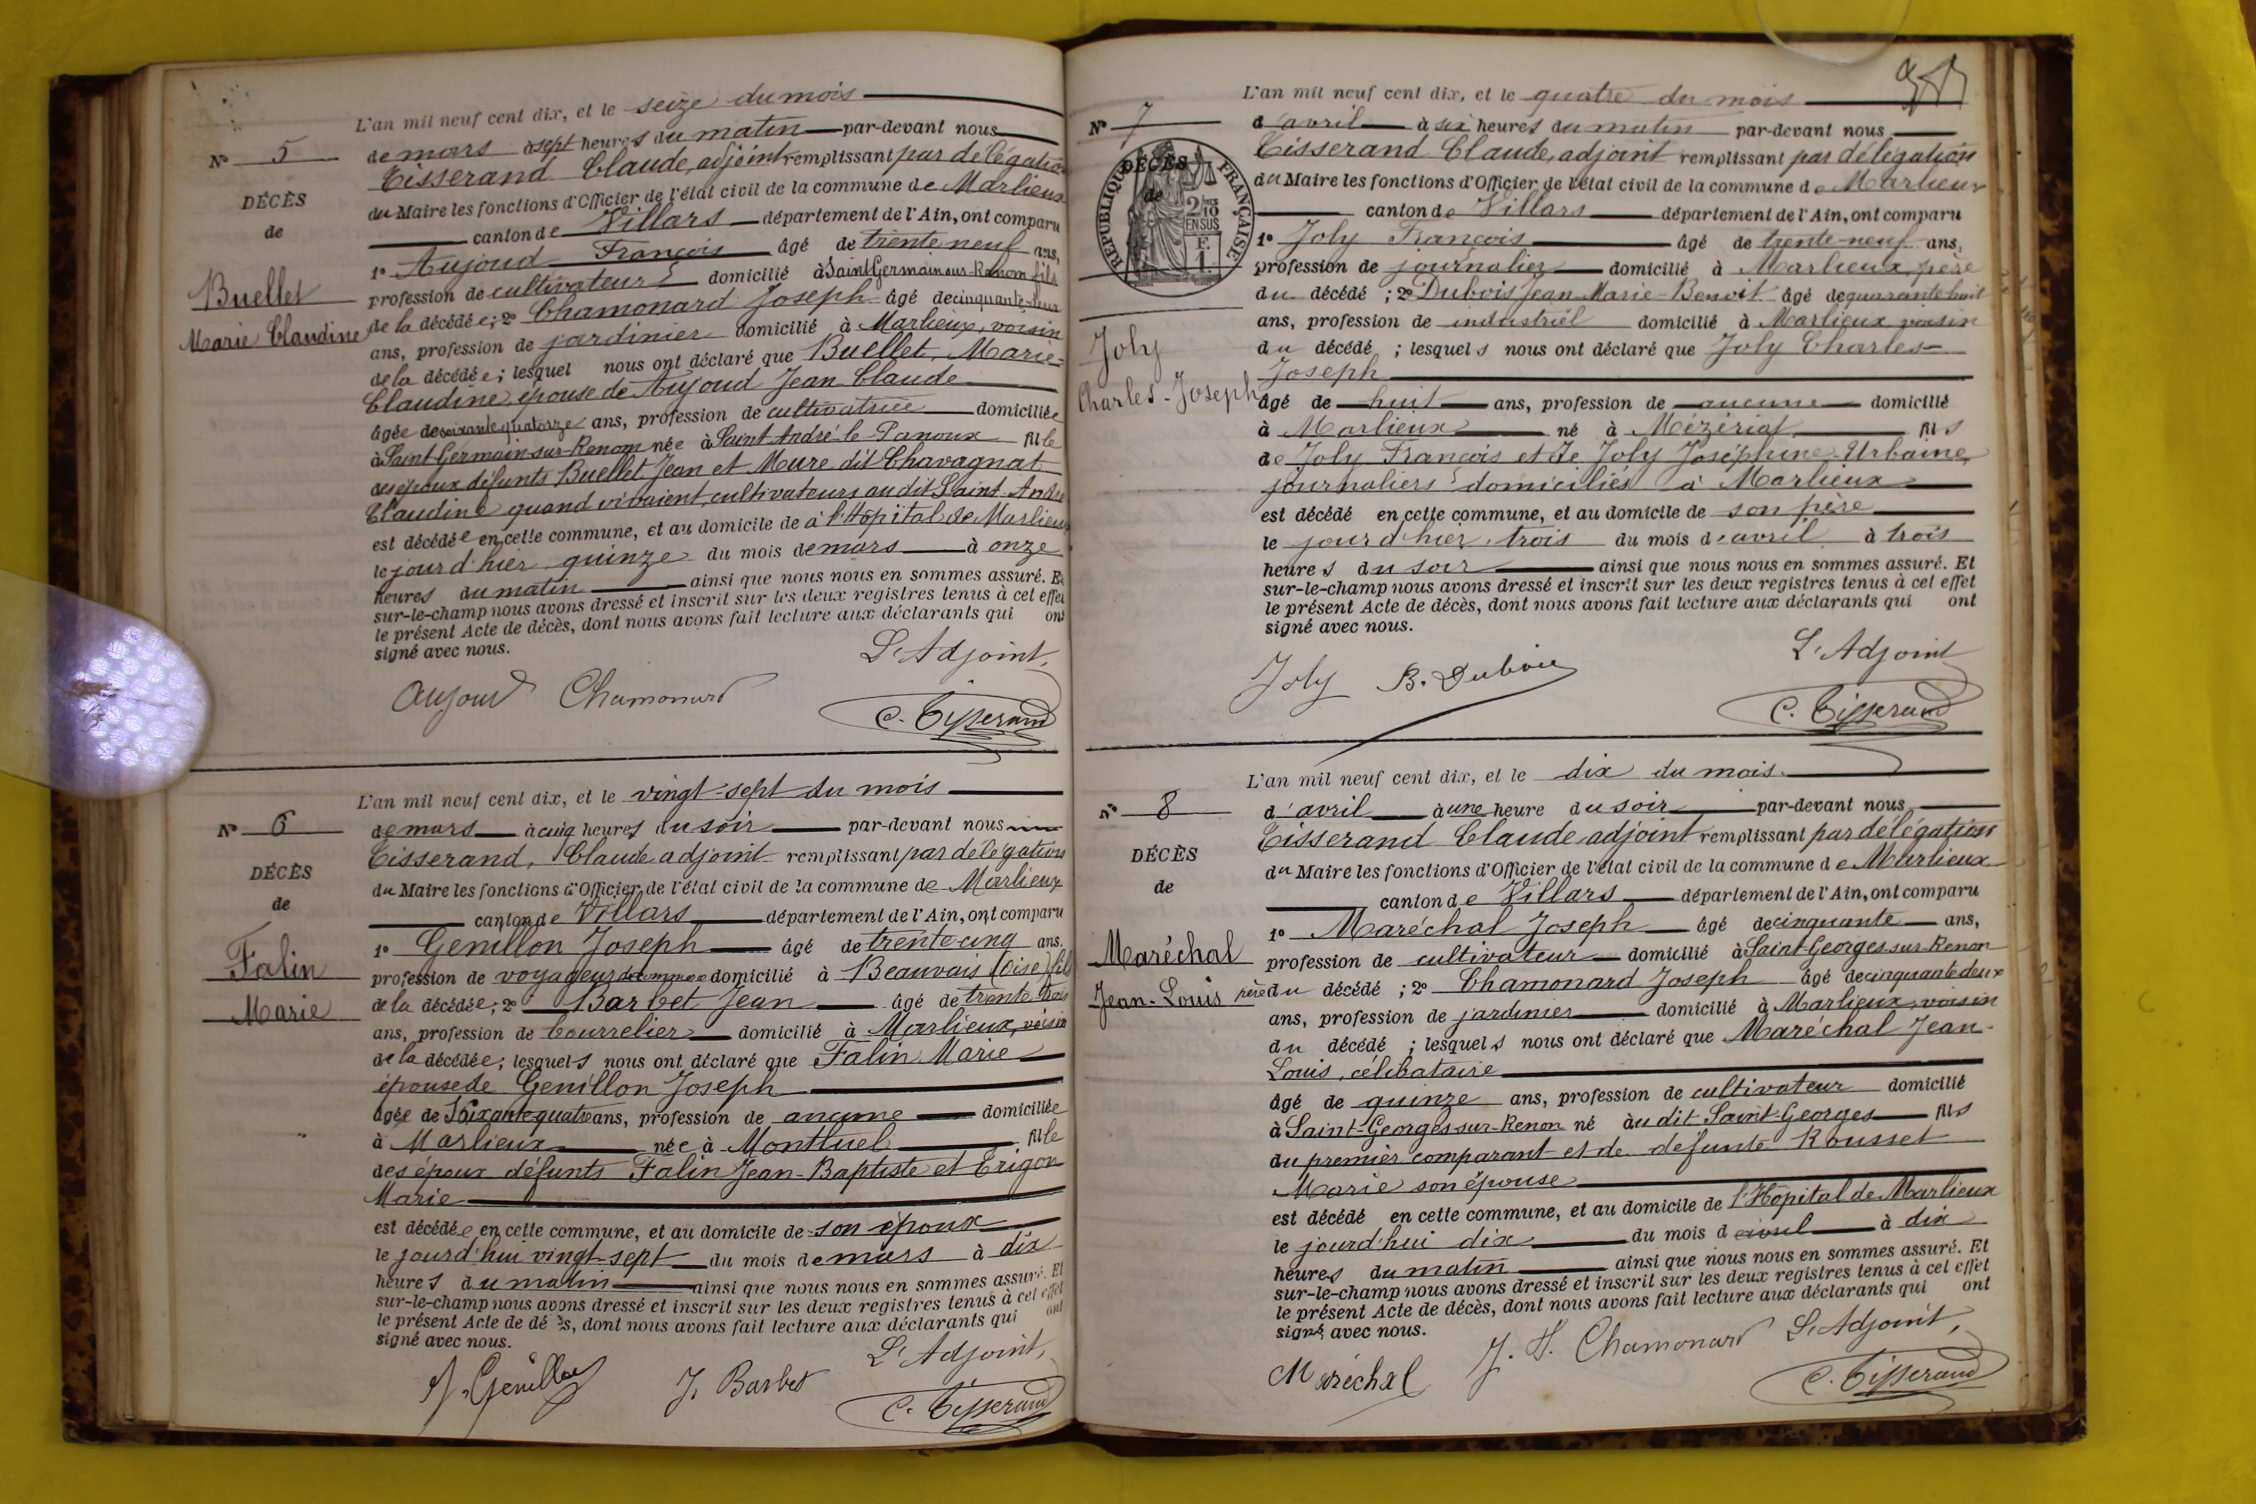 L'an mil neuf cent dix, et le seize du mois
N° 5
de mars à sept heures du matin par-devant nous
Tisserand Claude, adjoint remplissant par délégation
DÉCÈS
du Maire les fonctions d'Officier de l'état civil de la commune de Marlieux
de
canton de Villars département de l'Ain, ont comparu
1° Aujoud François âgé de trente neuf ans,
Buellet
profession de cultivateur domicilié à Saint Germain sur-Renom fils
Marie Claudine
de la décédée; 2° Chamonard Joseph âgé de cinquante-deux
ans, profession de jardinier domicilié à Marlieux, voisin
de la décédée; lesquel nous ont déclaré que Buellet, Marie-
Claudine, épouse de Aujoud Jean Claude
âgée de soixante quatorze ans, profession de cultivatrice domiciliée
à Saint Germain-sur-Renom née à Saint André-le-Panoux fille
des époux défunts Buellet Jean et Meure dit Chavagnat
Claudine quand vivaient, cultivateurs au dit Saint-André
est décédée en cette commune, et au domicile de à l'Hôpital de Marlieux
le jour d'hier quinze du mois de mars à onze
heures du matin ainsi que nous nous en sommes assuré. Et
sur-le-champ nous avons dressé et inscrit sur les deux registres tenus à cet effet
le présent Acte de décès, dont nous avons fait lecture aux déclarants qui ont
signé avec nous.
L'Adjoint,
Aujoud Chamonard
C. Tisserand
L'an mil neuf cent dix, et le vingt-sept du mois
N° 6
de mars à cinq heures du soir par-devant nous
Tisserand, Claude adjoint remplissant par délégation
DÉCÈS
du Maire les fonctions d'Officier de l'état civil de la commune de Marlieux
de
canton de Villars département de l'Ain, ont comparu
1° Genillon Joseph âgé de trente cinq ans,
Falin
profession de voyageur de commerce domicilié à Beauvais (Oise) fils
Marie
de la décédée; 2° Barbet Jean âgé de trente trois
ans, profession de bourrelier domicilié à Marlieux, voisin
de la décédée; lesquels nous ont déclaré que Falin Marie
épouse de Genillon Joseph
âgée de Soixante quatre ans, profession de aucune domiciliée
à Marlieux née à Montluel fille
des époux défunts Falin Jean-Baptiste et Erigon
Marie
est décédée en cette commune, et au domicile de son époux
le jourd'hui vingt-sept du mois de mars à dix
heures du matin ainsi que nous nous en sommes assuré. Et
sur-le-champ nous avons dressé et inscrit sur les deux registres tenus à cet effet
le présent Acte de décès, dont nous avons fait lecture aux déclarants qui ont
signé avec nous.
L'Adjoint,
J. Genillon J. Barbet
C. Tisserand
L'an mil neuf cent dix, et le quatre du mois
N° 7
d'avril à six heures du matin par-devant nous
Tisserand Claude, adjoint remplissant par délégation
DÉCÈS
de
RÉPUBLIQUE FRANÇAISE
2/10 EN SUS
F. 1.
du Maire les fonctions d'Officier de l'état civil de la commune de Marlieux
canton de Villars département de l'Ain, ont comparu
1° Joly François âgé de trente-neuf ans,
profession de journalier domicilié à Marlieux, père
du décédé ; 2° Dubois Jean-Marie-Benoit âgé de quarante huit
ans, profession de industriel domicilié à Marlieux voisin
Joly
du décédé ; lesquels nous ont déclaré que Joly Charles-
Charles-Joseph
Joseph
âgé de huit ans, profession de aucune domicilié
à Marlieux né à Mézériat fils
de Joly François et de Joly Joséphine-Urbaine,
journaliers domiciliés à Marlieux
est décédé en cette commune, et au domicile de son père
le jour d'hier trois du mois d'avril à trois
heures du soir ainsi que nous nous en sommes assuré. Et
sur-le-champ nous avons dressé et inscrit sur les deux registres tenus à cet effet
le présent Acte de décès, dont nous avons fait lecture aux déclarants qui ont
signé avec nous.
L'Adjoint
Joly B. Dubois
C. Tisserand
L'an mil neuf cent dix, et le dix du mois
N° 8
d'avril à une heure du soir par-devant nous
Tisserand Claude, adjoint remplissant par délégation
DÉCÈS
du Maire les fonctions d'Officier de l'état civil de la commune de Marlieux
de
canton de Villars département de l'Ain, ont comparu
1° Maréchal Joseph âgé de cinquante ans,
Maréchal
profession de cultivateur domicilié à Saint-Georges-sur-Renon
Jean-Louis
père du décédé ; 2° Chamonard Joseph âgé de cinquante deux
ans, profession de jardinier domicilié à Marlieux, voisin
du décédé ; lesquels nous ont déclaré que Maréchal Jean-
Louis, célibataire
âgé de quinze ans, profession de cultivateur domicilié
à Saint-Georges-sur-Renon né àu dit Saint-Georges fils
du premier comparant et de défunte Rousset
Marie son épouse
est décédé en cette commune, et au domicile de l'Hôpital de Marlieux
le jourd'hui dix du mois d'avril à dix
heures du matin ainsi que nous nous en sommes assuré. Et
sur-le-champ nous avons dressé et inscrit sur les deux registres tenus à cet effet
le présent Acte de décès, dont nous avons fait lecture aux déclarants qui ont
signé avec nous.
L'Adjoint,
Maréchal J. H. Chamonard
C. Tisserand